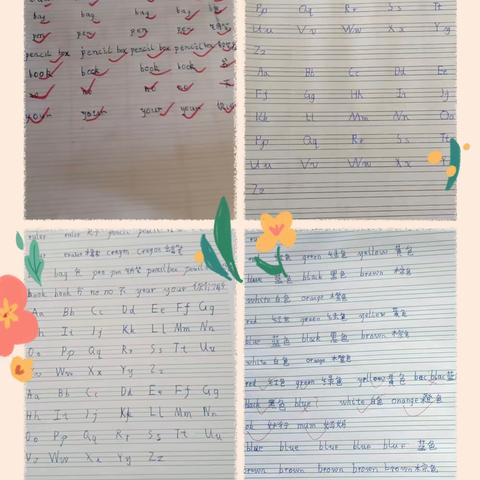 bag bag bag bag
pen pen pen pen
pencil box pencil box pencil box pencil box
book book book book
no no no no
your your your your
Pp Qq Rr Ss Tt
Uu Vv Ww Xx Yy
Zz
Aa Bb Cc Dd Ee
Ff Gg Hh Ii Jj
Kk Ll Mm Nn Oo
Pp Qq Rr Ss Tt
Uu Vv Ww Xx
Zz
ruler ruler 尺子 pencil pencil
crayon crayon 蜡笔
bag 包 pen pen 钢笔 pencil box pencil
book book 书 no no 不 your your 你的
Aa Bb Cc Dd Ee Ff Gg
Hh Ii Jj Kk Ll Mm Nn
Oo Pp Qq Rr Ss Tt Uu
Vv Ww Xx Yy Zz
Aa Bb Cc Dd Ee Ff Gg
Hh Ii Jj Kk Ll Mm Nn
Oo Pp Qq Rr Ss Tt Uu
Vv Ww Xx Yy Zz
红色 green 绿色 yellow 黄色
blue 蓝色 black 黑色 brown 棕色
white 白色 orange 橙色
red 红色 green 绿色 yellow 黄色
blue 蓝色 black 黑色 brown 棕色
white 白色 orange 橙色
red 红色 green 绿色 yellow 黄色
black 黑色 blue? white 白色 orange 橙色
ok 好的 mum 妈妈
blue blue blue blue blue 蓝色
brown brown brown brown brown 棕色